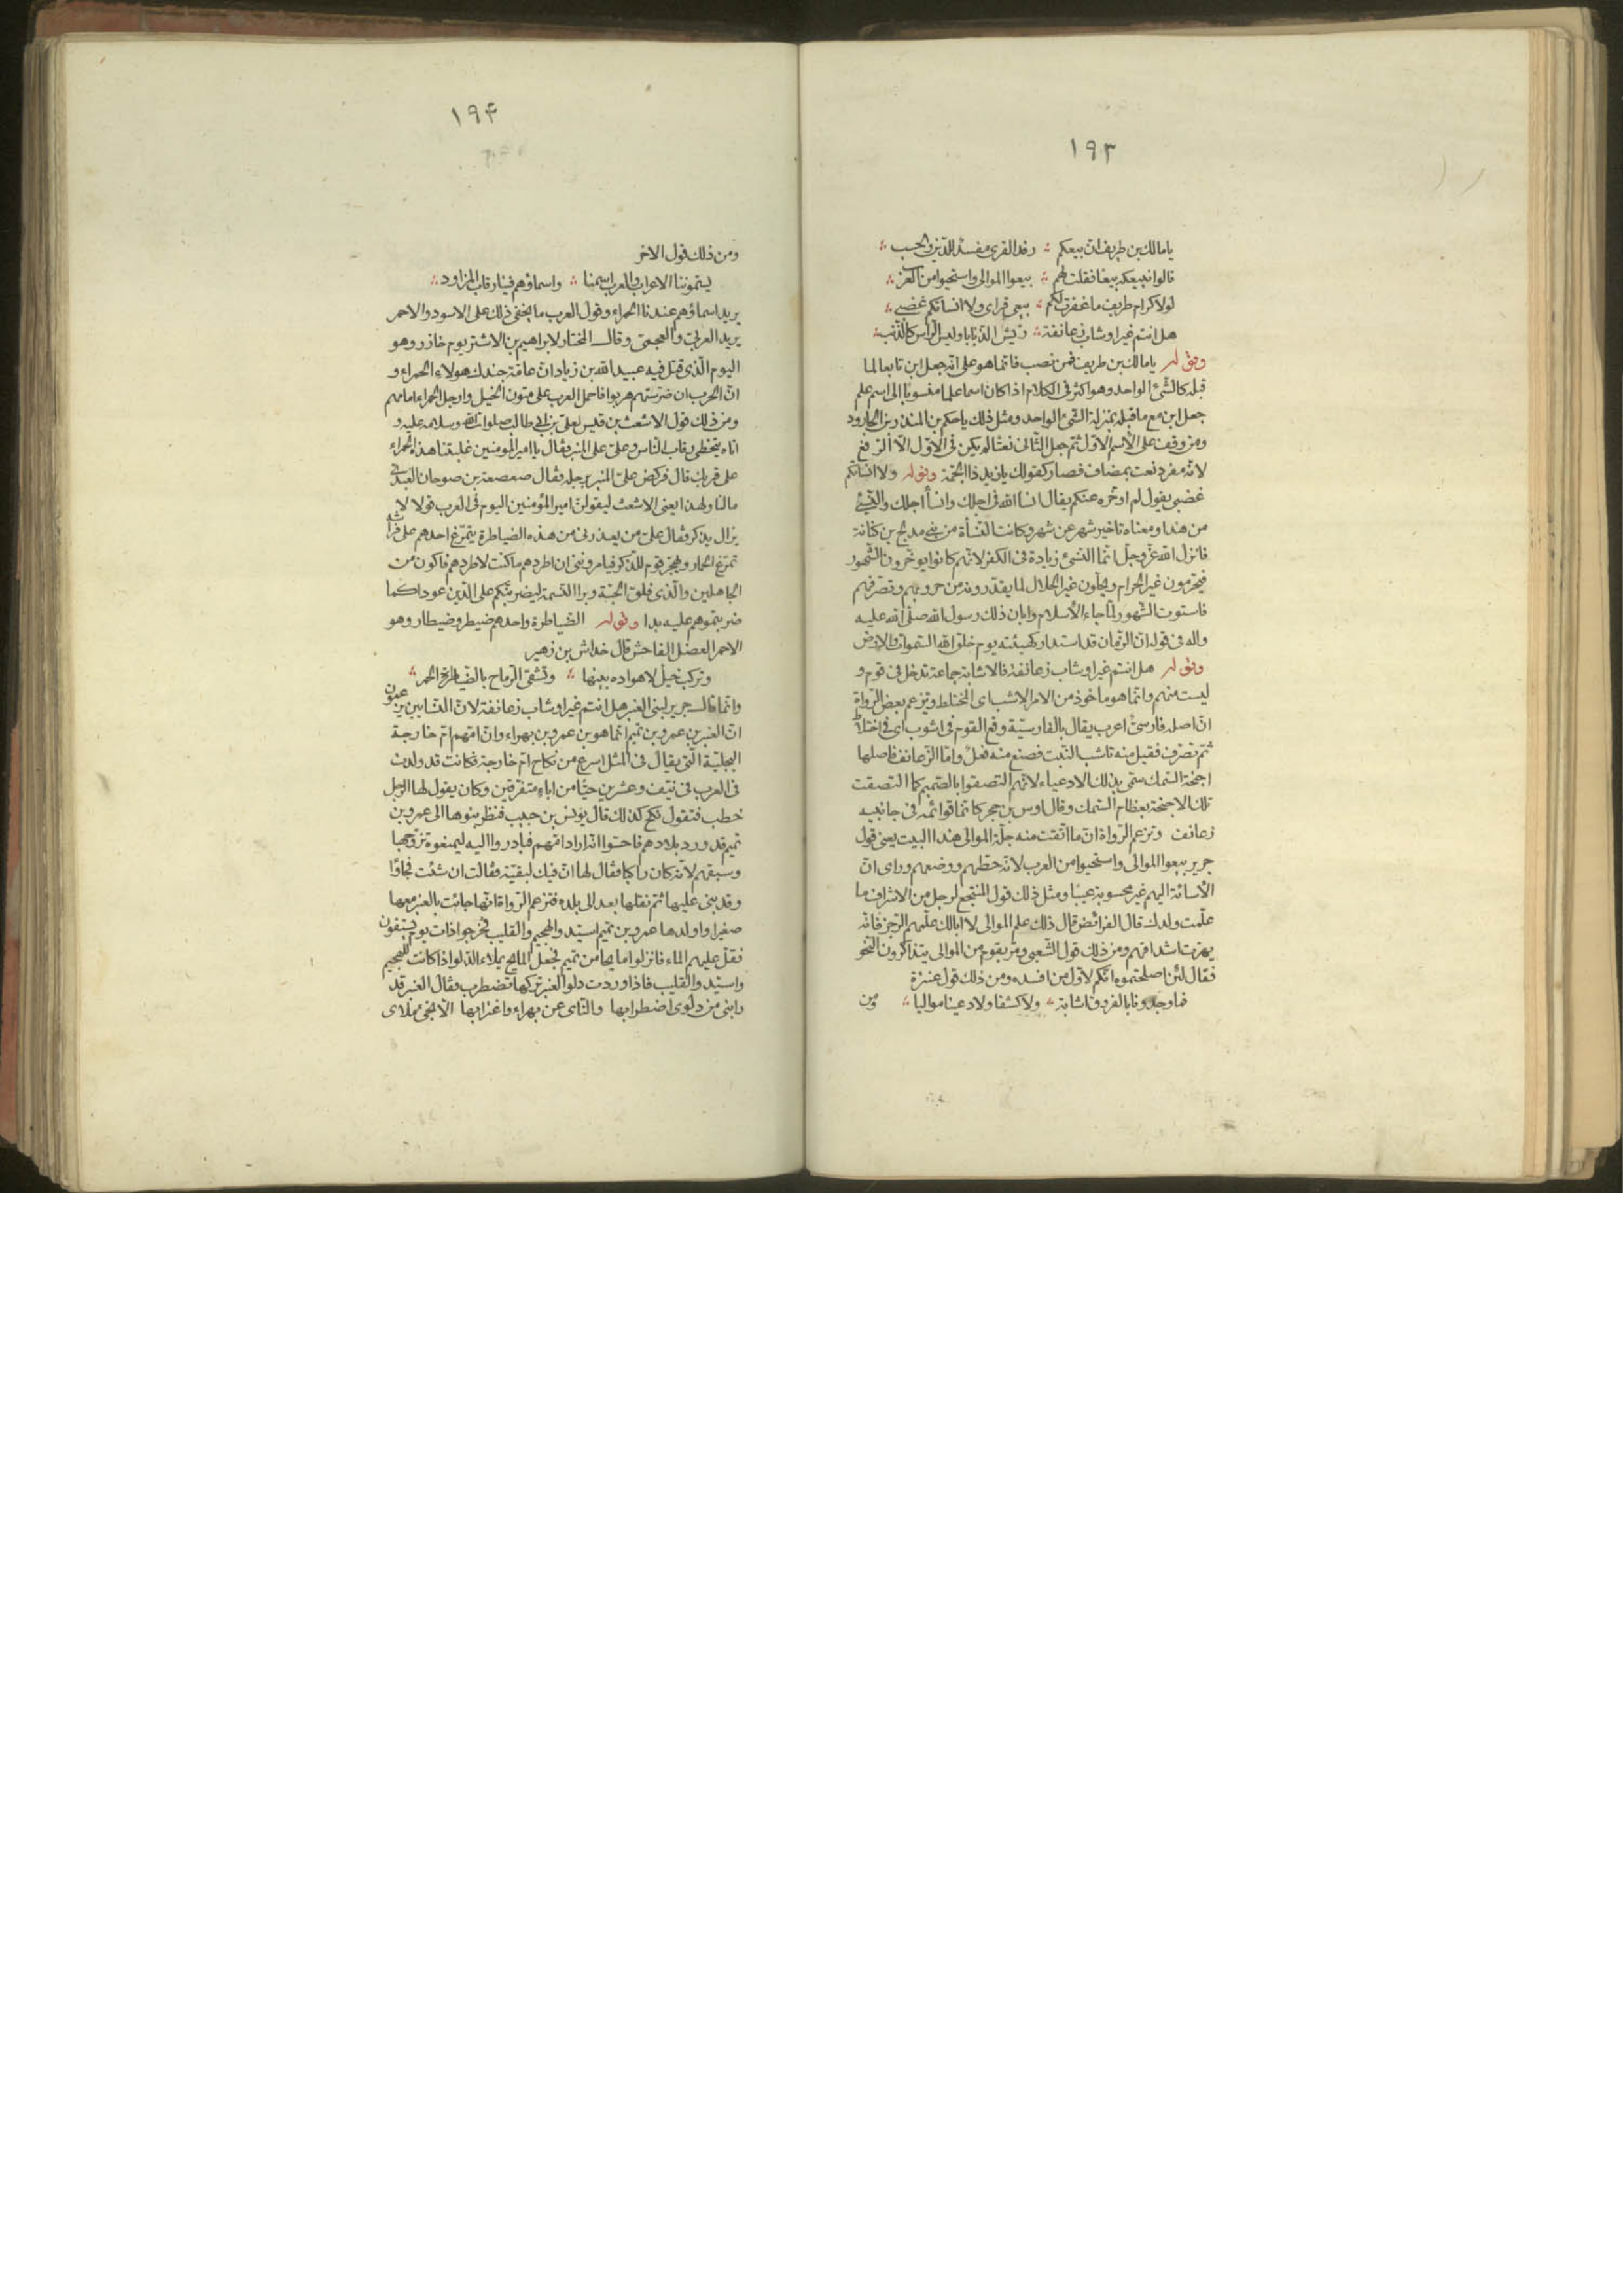 ١٩٣
يا مالك بن طريف ان بيعكم رفد القرى مفسد للدين والحسب
قالوا نبيعكه بيعا فقلت لهم بيعوا الموالى واستحيوا من العرب
لولا كرام طريف ما غفرت لكم بيعى قراى ولا انسأتكم غضبى
هل انتم غير اوشاب زعانفة ريش الذنابا وليس الرأس كالذنب
وقوله يا مالك بن طريف فمن نصب فانما هو على انه جعل ابن تابعا لما
قبله كالشئ الواحد وهو اكثر فى الكلام اذا كان اسما علما منسوبا الى اسم علم
جعل ابن مع ما قبله بمنزلة الشئ الواحد ومثل ذلك يا حكم بن المنذر بن الجارود
ومن وقف على الاسم الاول ثم جعل الثانى نعتا لم يكن فى الاول الا الرفع
لانه مفرد نعت بمضاف فصار كقولك يا زيد ذا الجمة وقوله ولا انسأتكم
غضبى يقول لم اوخره عنكم يقال انسأ الله فى اجلك وانسأ اجلك والنسئ
من هذا ومعناه تاخير شهر عن شهر وكانت النسأة من بنى مدلج بن كنانة
فانزل الله عز وجل انما النسئ زيادة فى الكفر لانهم كانوا يوخرون الشهور
فيحرمون غير الحرام ويحلون غير الحلال لما يقدرونه من حروبهم وتصرفهم
فاستوت الشهور لما جاء الاسلام وابان ذلك رسول الله صلى الله عليه
واله فى قوله ان الزمان قد استدار كهيئته يوم خلق الله السموات والارض
وقوله هل انتم غير اوشاب زعانفة فالاشابة جماعة تدخل فى قوم و
ليست منهم وانما هو ماخوذ من الامر الاشب اى المختلط ويزعم بعض الرواة
ان اصله فارسى اعرب يقال بالفارسية وقع القوم فى اشوب اى فى اختلاط
ثم تصرف فقيل منه تاشب النبت فصنع منه فعل واما الزعانف فاصلها
اجنحة السمك سمى بذلك الادعياء لانهم التصقوا بالصميم كما التصقت
تلك الاجنحة بعظام السمك وقال اوس بن حجر كانما قوائمه فى جانبيه
زعانف وتزعم الرواة ان ما انفت منه جلة الموالى هذا البيت يعنى قول
جرير بيعوا الموالى واستحيوا من العرب لانه حطهم ووضعهم وراى ان
الاسائة اليهم غير محسوبة عيبا ومثل ذلك قول المنتجع لرجل من الاشراف ما
علمت ولدك قال الفرائض قال ذلك علم الموالى لا ابا لك علمهم الرجز فانه
يهرت اشداقهم ومن ذلك قول الشعبى ومر بقوم من الموالى يتذاكرون النحو
فقال لئن اصلحتموه انكم لاول من افسده ومن ذلك قول عنترة
فما وجدونا بالفروق اشابة ولا كشفا ولا دعينا مواليا ومن
١٩۴
ومن ذلك قول الاخر
يسموننا الاعراب والعرب اسمنا واسماؤهم فينا رقاب المزاود
يريد اسماؤهم عندنا الحمراء وقول العرب ما يخفى ذلك على الاسود والاحمر
يريد العربى والعجمى وقال المختار لابراهيم بن الاشتر يوم خازر وهو
اليوم الذى قتل فيه عبيد الله بن زياد ان عامة جندك هولاء الحمراء و
ان الحرب ان ضرستهم هربوا فاحمل العرب على متون الخيل وارجل الحمراء امامهم
ومن ذلك قول الاشعث بن قيس لعلى بن ابى طالب صلوات الله وسلامه عليه و
اتاه يتخطى رقاب الناس وعلى على المنبر فقال يا امير المومنين غلبتنا هذه الحمراء
على قربك قال فركض على المنبر برجله فقال صعصعة بن صوحان العبدى
ما لنا ولهذا يعنى الاشعث ليقولن امير المؤمنين اليوم فى العرب قولا لا
يزال يذكر فقال على من يعذرنى من هذه الضياطرة يتمرغ احدهم على فراشه
تمرغ الحمار ويهجر قوم للذكر فيامروننى ان اطردهم ما كنت لاطردهم فاكون من
الجاهلين والذى فلق الحبة وبرا النسمة ليضربنكم على الدين عودا كما
ضربتموهم عليه بدا وقوله الضياطرة واحدهم ضيطر وضيطار وهو
الاحمر العضل الفاحش قال خداش بن زهير
وتركب خيل لا هواده بينها وتشقى الرماح بالضياطرة الحمر
وانما قال جرير لبنى العنبر هل انتم غير اوشاب زعانفة لان النسابين يزعمون
ان العنبر بن عمرو بن تميم انما هو بن عمرو بن بهراء وان امهم ام خارجة
البجلية التى يقال فى المثل اسرع من نكاح ام خارجة فكانت قد ولدت
فى العرب فى نيف وعشرين حيا من اباء متفرقين وكان يقول لها الرجل
خطب فتقول نكح كذلك قال يونس بن حبيب فنظر بنوها الى عمرو بن
تميم قد ورد بلادهم فاحسوا انه اراد امهم فبادروا اليه ليمنعوه تزوجها
وسبقهم لانه كان راكبا فقال لها ان فيك لبقية فقالت ان شئت فجاؤا
وقد بنى عليها ثم نقلها بعد الى بلده فتزعم الرواة انها جائت بالعنبر معها
صغيرا واولدها عمرو بن تميم اسيد والهجيم والقليب فخرجوا ذات يوم يستقون
فقل عليهم الماء فانزلوا مايحا من تميم فجعل المايح يملاء الدلو اذا كانت للهجيم
واسيد والقليب فاذا وردت دلو العنبر تركها تضطرب فقال العنبر قد
رابنى من دلوى اضطرابها والناى عن بهراء واغترابها الا تجئ ملاى